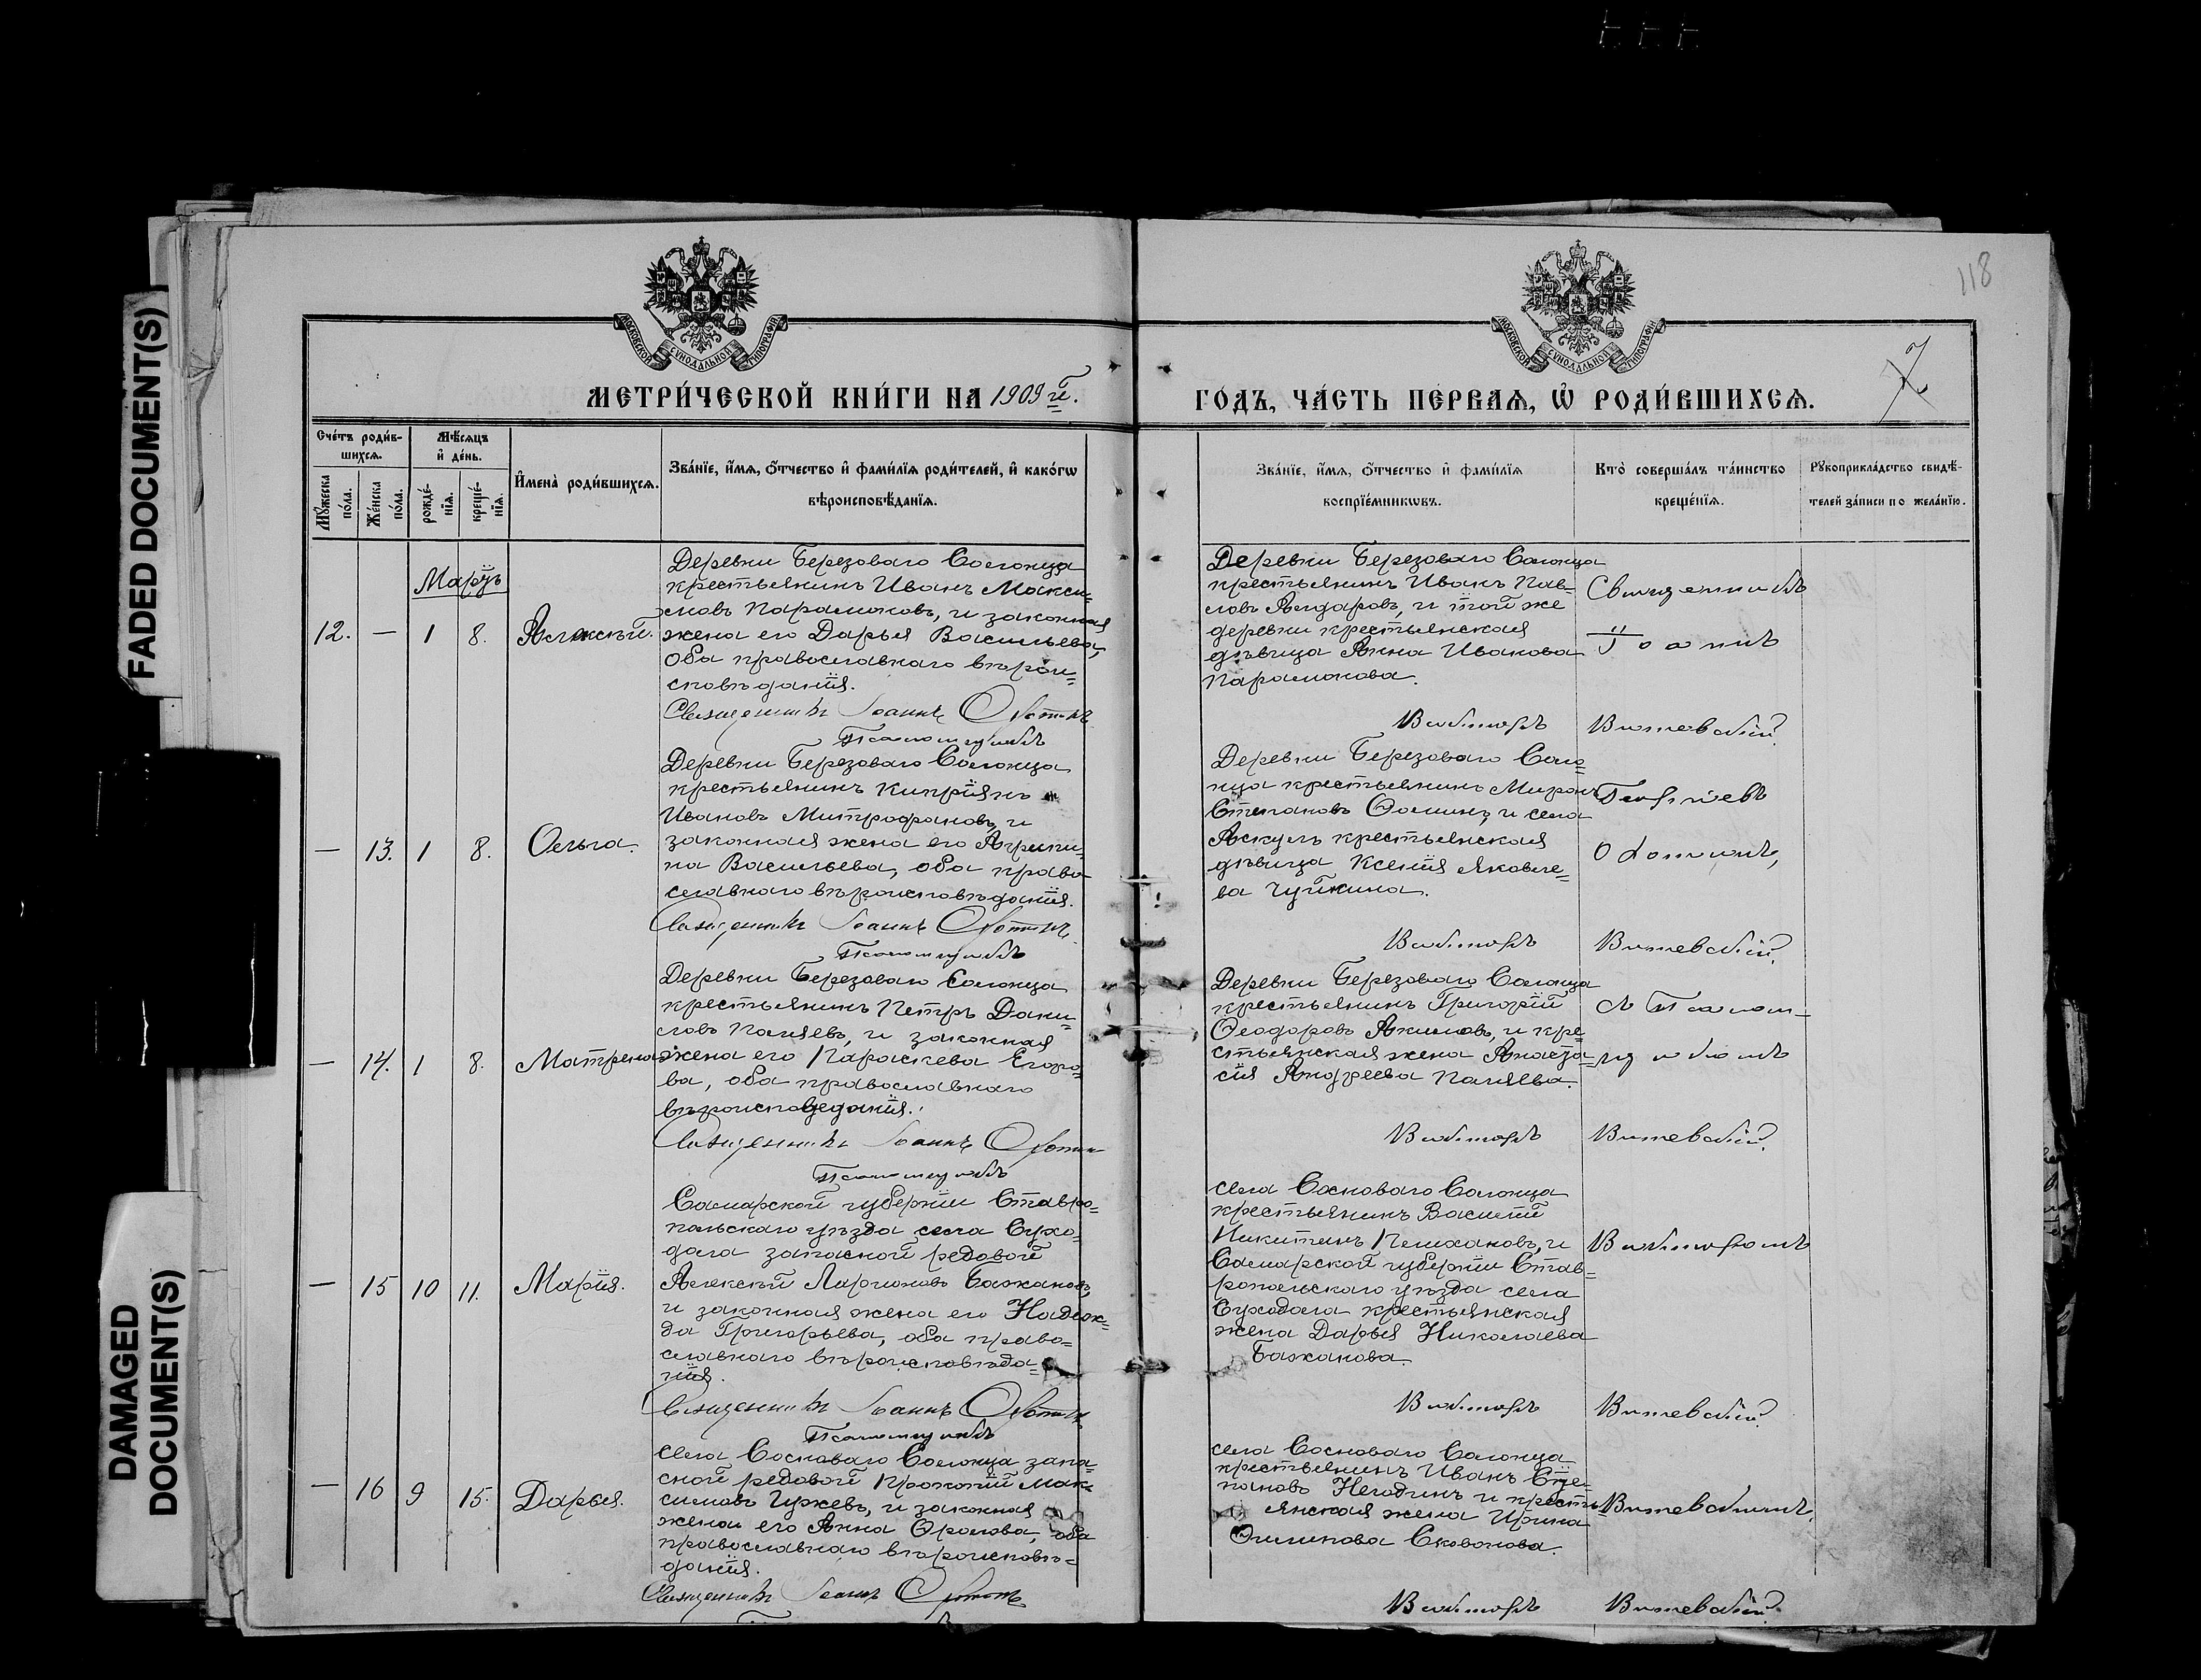 FADED DOCUMENT(S)
DAMAGED
DOCUMENT(S)
118
7
МОСКОВСКОЙ СѴНОДАЛЬНОЙ ТИПОГРАФІИ
МОСКОВСКОЙ СѴНОДАЛЬНОЙ ТИПОГРАФІИ
МЕТРИ́ЧЕСКОЙ КНИ́ГИ НА 1909 й.
ГОДЪ, ЧА́СТЬ ПЕ́РВАѦ, Ѡ҆ РОДИ́ВШИХСѦ.
Сче́тъ роди́в-
шихсѧ.
Мѣ́сѧцъ
и҆ де́нь.
Мꙋ́жеска
по́ла.
Же́нска
по́ла.
рожде́-
нїѧ.
креще́-
нїѧ.
И҆мена̀ роди́вшихсѧ.
Зва́нїе, и҆́мѧ, ѻ҆́тчество и҆ фами́лїѧ роди́телей, и҆ како́гѡ
вѣроисповѣ́данїѧ.
Зва́нїе, и҆́мѧ, ѻ҆́тчество и҆ фами́лїѧ
воспрїе́мникѡвъ.
Кто̀ соверша́лъ та́инство
креще́нїѧ.
Рꙋкоприкла́дство свидѣ́-
телей за́писи по жела́нїю.
Мартъ
12. — 1 8. Алексѣй.
Деревни Березоваго Солонца
крестьянинъ Иванъ Макси-
мовъ Парамоновъ, и законная
жена его Дарья Васильева,
оба православнаго вѣрои-
сповѣданія.
Священникъ Іоаннъ
Псаломщикъ
Деревни Березоваго Солонца
крестьянинъ Иванъ Пав-
ловъ Айдаровъ, и той же
деревни крестьянская
дѣвица Анна Иванова
Парамонова.
Викторъ
Священникъ
Іоаннъ
Вишевскій
— 13. 1 8. Ольга.
Деревни Березоваго Солонца
крестьянинъ Кипріянъ
Ивановъ Митрофановъ, и
законная жена его Агрипи-
на Васильева, оба право-
славнаго вѣроисповѣданія.
Священникъ Іоаннъ
Псаломщикъ
Деревни Березоваго Соло-
нца крестьянинъ Миронъ
Степановъ Ѳоминъ, и села
Аскулъ крестьянская
дѣвица Ксенія Яковле-
ва Чуйкина.
Викторъ
Вишевскій
— 14. 1 8. Матрена
Деревни Березоваго Солонца
крестьянинъ Петръ Дани-
ловъ Паляевъ, и законная
жена его Параскева Егоро-
ва, оба православнаго
вѣроисповеданія.
Священникъ Іоаннъ
Псаломщикъ
Деревни Березоваго Солонца
крестьянинъ Григорій
Ѳеодоровъ Акимовъ, и кре-
стьянская жена Анаста-
сія Андреева Паляева.
Викторъ
съ Псалом-
щикомъ
Вишевскій
— 15 10 11. Марія.
Самарской губерніи Ставро-
польскаго уѣзда села Сухо-
дола запасной рядовой
Алексѣй Ларіоновъ Бажановъ,
и законная жена его Надеж-
да Григорьева, оба право-
славнаго вѣроисповѣда-
нія.
Священникъ Іоаннъ
Псаломщикъ
села Сосноваго Солонца
крестьянинъ Василій
Никитинъ Пелихановъ, и
Самарской губерніи Став-
ропольскаго уѣзда села
Суходола крестьянская
жена Дарья Николаева
Бажанова.
Викторъ
Викторомъ
Вишевскій
— 16 9 15. Дарья.
села Сосноваго Солонца запа-
сной рядовой Прокопій Мак-
симовъ Гужевъ, и законная
жена его Анна Фролова, оба
православнаго вѣроисповѣ-
данія.
Священникъ Іоаннъ
села Сосноваго Солонца
крестьянинъ Иванъ Сте-
пановъ Негодинъ и кресть-
янская жена Ирина
Филипова
Викторъ
Вишевскимъ.
Вишевскій